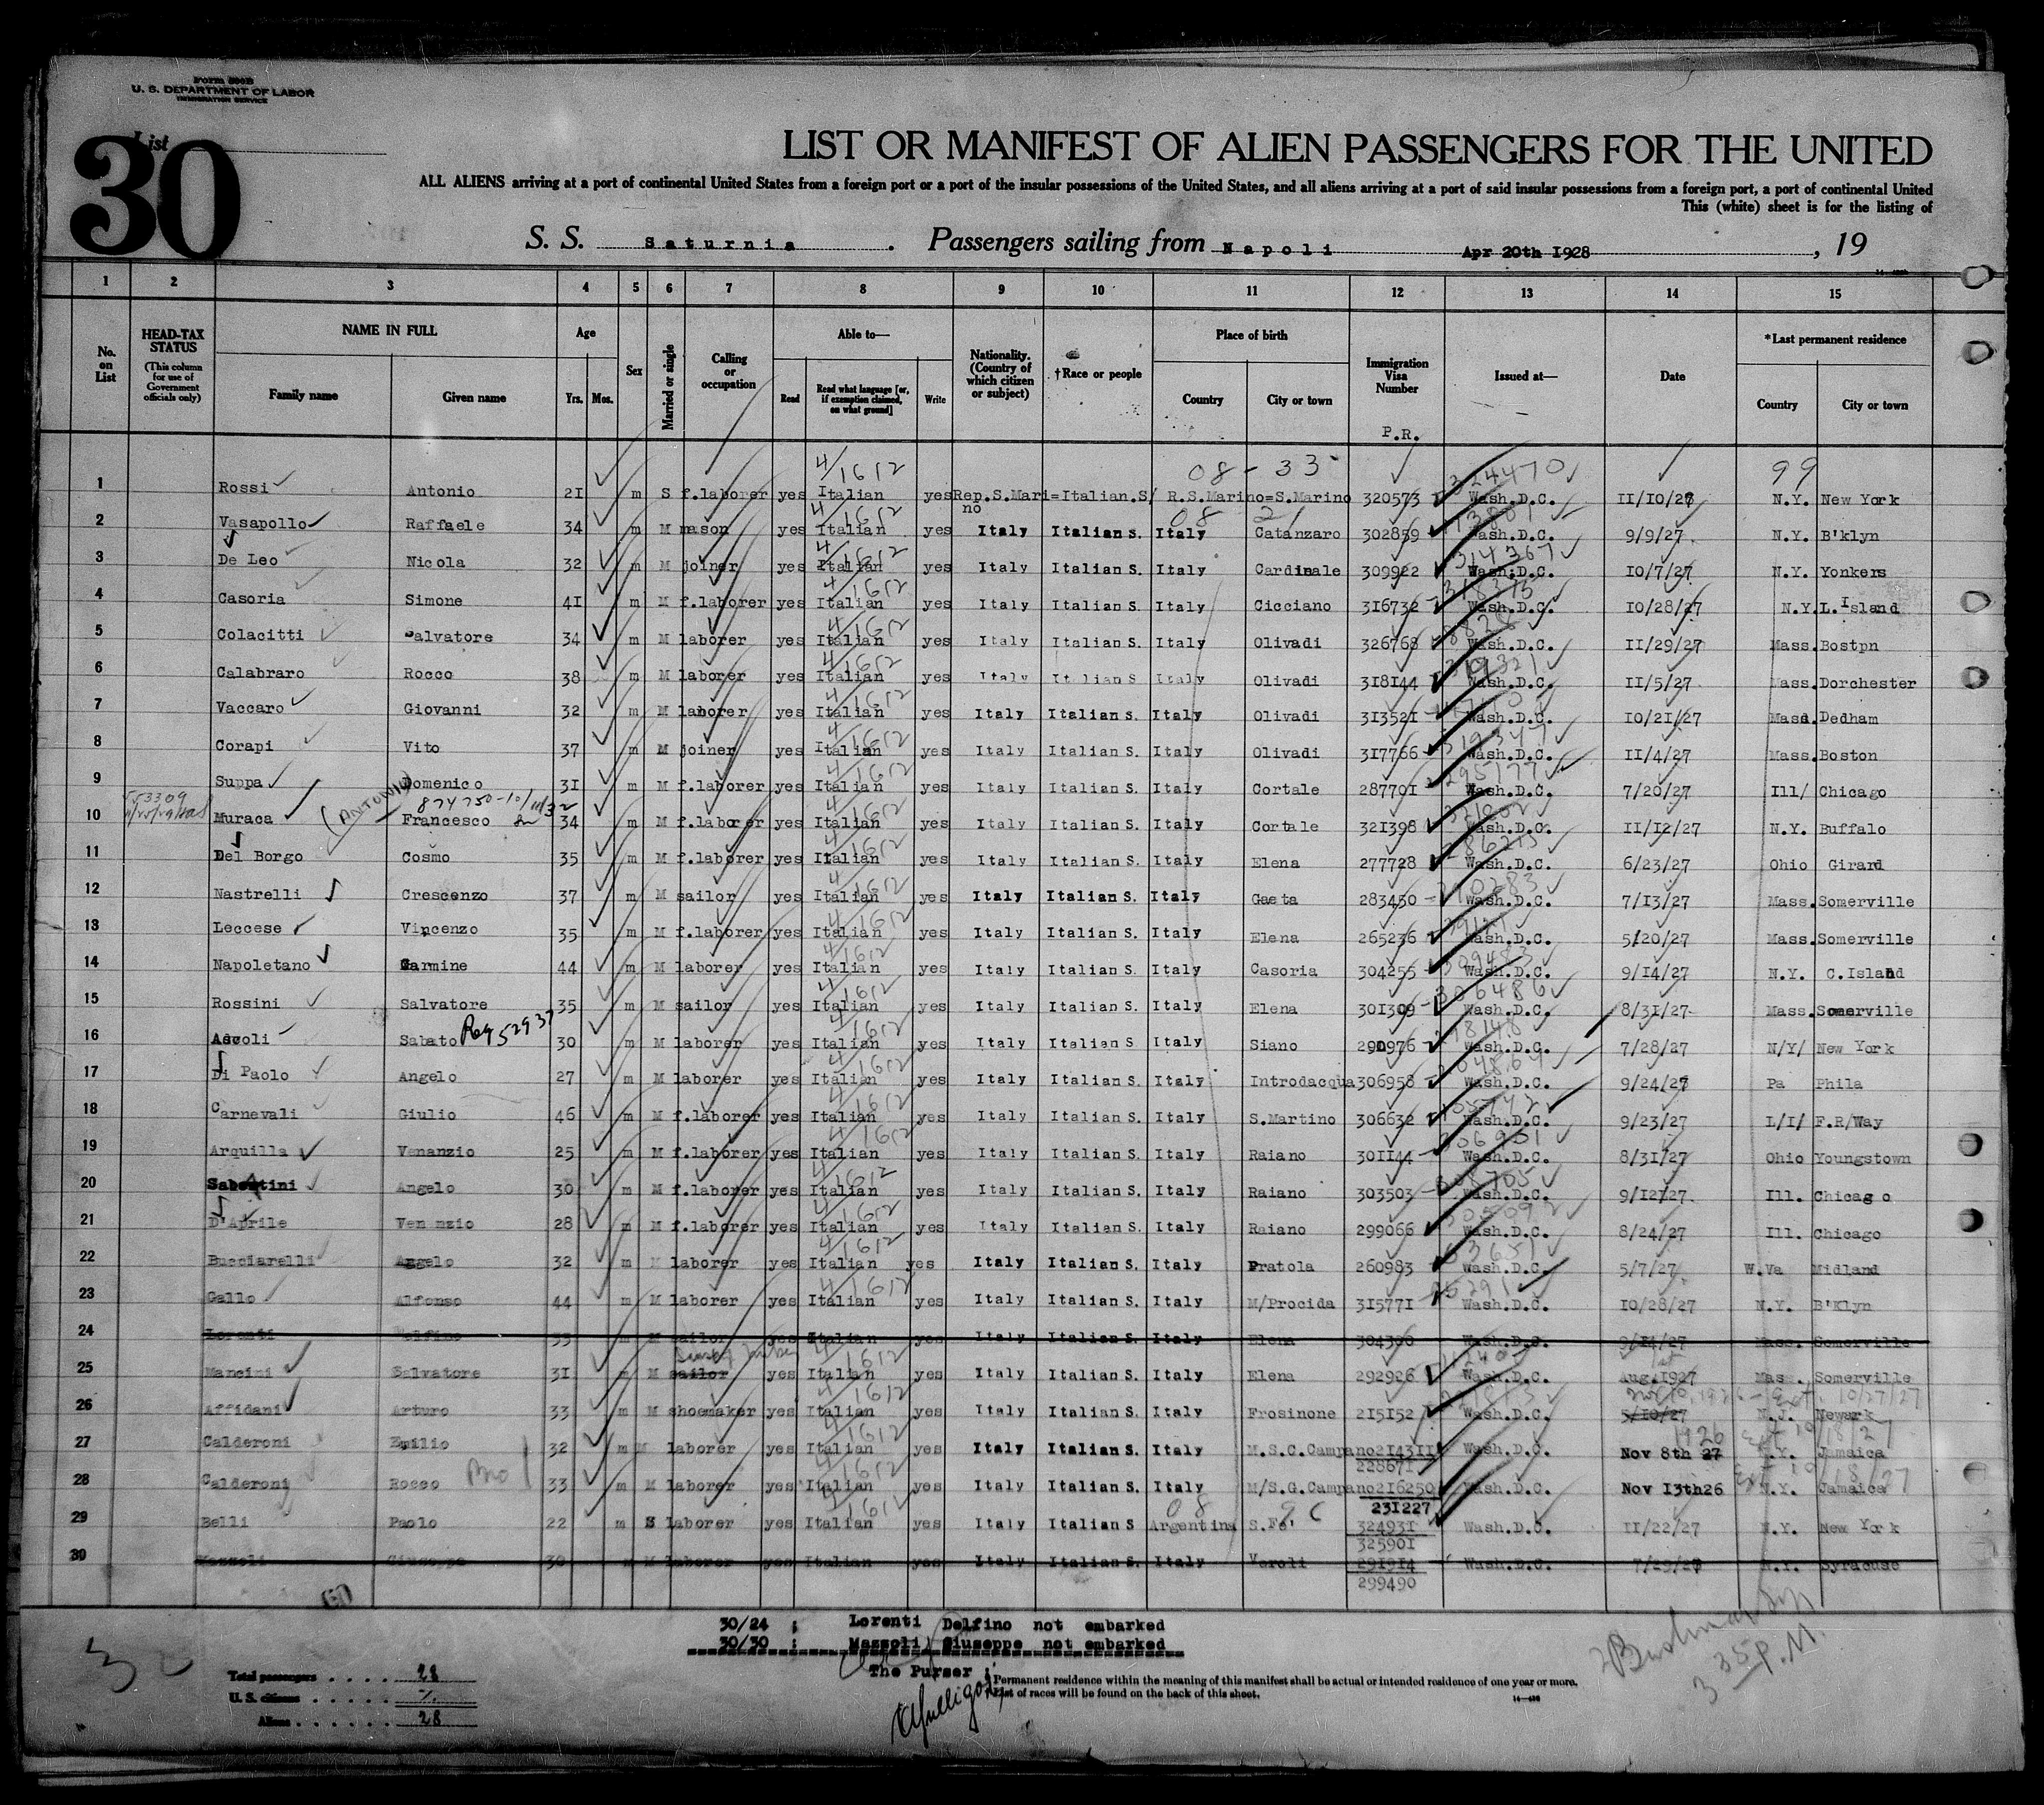 Form 500B
U. S. DEPARTMENT OF LABOR
IMMIGRATION SERVICE
List
30
LIST OR MANIFEST OF ALIEN PASSENGERS FOR THE UNITED
ALL ALIENS arriving at a port of continental United States from a foreign port or a port of the insular possessions of the United States, and all aliens arriving at a port of said insular possessions from a foreign port, a port of continental United
This (white) sheet is for the listing of
S. S. Saturnia . Passengers sailing from Napoli Apr 20th 1928 , 19
1 2 3 4 5 6 7 8 9 10 11 12 13 14 15
No. on List HEAD-TAX STATUS (This column for use of Government officials only) NAME IN FULL Family name Given name Age Yrs. Mos. Sex Married or single Calling or occupation Able to— Read Read what language [or, if exemption claimed, on what ground] Write Nationality. (Country of which citizen or subject) †Race or people Place of birth Country City or town Immigration Visa Number Issued at— Date *Last permanent residence Country City or town
P.R.
08 - 33 324470 99
1 Rossi Antonio 21 m S f.laborer yes Italian yes Rep.S.Mari=Italian.S/ R.S.Marino=S.Marino 320573 Wash.D.C. 11/10/27 N.Y. New York
no
2 Vasapollo Raffaele 34 m M mason yes Italian yes Italy Italian S. Italy Catanzaro 302859 Wash.D.C. 9/9/27 N.Y. B'klyn
3 De Leo Nicola 32 m M joiner yes Italian yes Italy Italian S. Italy Cardinale 309922 Wash.D.C. 10/7/27 N.Y. Yonkers
4 Casoria Simone 41 m M f.laborer yes Italian yes Italy Italian S. Italy Cicciano 316732 Wash.D.C. 10/28/27 N.Y. L.Island
5 Colacitti Salvatore 34 m M laborer yes Italian yes Italy Italian S. Italy Olivadi 326768 Wash.D.C. 11/29/27 Mass. Bostpn
6 Calabraro Rocco 38 m M laborer yes Italian yes Italy Italian S Italy Olivadi 318144 Wash.D.C. 11/5/27 Mass. Dorchester
7 Vaccaro Giovanni 32 m M laborer yes Italian yes Italy Italian S. Italy Olivadi 313521 Wash.D.C. 10/21/27 Mass. Dedham
8 Corapi Vito 37 m M joiner yes Italian yes Italy Italian S. Italy Olivadi 317766 Wash.D.C. 11/4/27 Mass. Boston
9 Suppa Domenico 31 m M f.laborer yes Italian yes Italy Italian S. Italy Cortale 287701 Wash.D.C. 7/20/27 Ill/ Chicago
(ANTONIO) 874750-10/11/32
10 Muraca Francesco 34 m M f.laborer yes Italian yes Italy Italian S. Italy Cortale 321398 Wash.D.C. 11/12/27 N.Y. Buffalo
11 Del Borgo Cosmo 35 m M f.laborer yes Italian yes Italy Italian S. Italy Elena 277728 Wash.D.C. 6/23/27 Ohio Girard
12 Nastrelli Crescenzo 37 m M sailor yes Italian yes Italy Italian S. Italy Gaeta 283450 Wash.D.C. 7/13/27 Mass. Somerville
13 Leccese Vincenzo 35 m M f.laborer yes Italian yes Italy Italian S. Italy Elena 265236 Wash.D.C. 5/20/27 Mass. Somerville
14 Napoletano Carmine 44 m M laborer yes Italian yes Italy Italian S. Italy Casoria 304255 Wash.D.C. 9/14/27 N.Y. C.Island
15 Rossini Salvatore 35 m M sailor yes Italian yes Italy Italian S. Italy Elena 301309 Wash.D.C. 8/31/27 Mass. Somerville
16 Ascoli Sabato Reg 52937 30 m M laborer yes Italian yes Italy Italian S Italy Siano 290976 Wash.D.C. 7/28/27 N/Y/ New York
17 Di Paolo Angelo 27 m M laborer yes Italian yes Italy Italian S. Italy Introdacqua 306958 Wash.D.C. 9/24/27 Pa Phila
18 Carnevali Giulio 46 m M f.laborer yes Italian yes Italy Italian S. Italy S.Martino 306632 Wash.D.C. 9/23/27 L/I/ F.R/Way
19 Arquilla Venanzio 25 m M f.laborer yes Italian yes Italy Italian S. Italy Raiano 301144 Wash.D.C. 8/31/27 Ohio Youngstown
20 Sabentini Angelo 30 m M f.laborer yes Italian yes Italy Italian S. Italy Raiano 303503 Wash.D.C. 9/12/27 Ill. Chicago
21 D'Aprile Ven nzio 28 m M f.laborer yes Italian yes Italy Italian S. Italy Raiano 299066 Wash.D.C. 8/24/27 Ill. Chicago
22 Bucciarelli Angelo 32 m M laborer yes Italian yes Italy Italian S. Italy Pratola 260983 Wash.D.C. 5/7/27 W.Va Midland
23 Gallo Alfonso 44 m M laborer yes Italian yes Italy Italian S. Italy M/Procida 315771 Wash.D.C. 10/28/27 N.Y. B'Klyn
24 Lorenti Delfino 35 m M sailor yes Italian yes Italy Italian S. Italy Elena 304300 Wash.D.C. 9/14/27 Mass. Somerville
25 Mancini Salvatore 31 m M sailor yes Italian yes Italy Italian S. Italy Elena 292926 Wash.D.C. Aug.1927 Mas . Somerville
26 Affidani Arturo 33 m M shoemaker yes Italian yes Italy Italian S. Italy Frosinone 215152 Wash.D.C. 5/10/27 N.J. Newark
27 Calderoni Emilio 32 m M laborer yes Italian yes Italy Italian S. Italy M.S.C.Campano 214311 Wash.D.C. Nov 8th 27 N.Y. Jamaica
228671
28 Calderoni Rocco Bro 33 m M laborer yes Italian yes Italy Italian S. Italy M/S.G.Campano 216250 Wash.D.C. Nov 13th26 N.Y. Jamaica
231227
29 Belli Paolo 22 m S laborer yes Italian yes Italy Italian S Argentina S.Fe' 324931 Wash.D.C. 11/22/27 N.Y. New York
325901
30 Mazzoli Giuseppe 30 m M laborer yes Italian yes Italy Italian S. Italy Veroli 291914 Wash.D.C. 7/29/27 N.Y. Syracuse
299490
30/24 ; Lorenti Delfino not embarked
30/30 ; Mazzoli Giuseppe not embarked
The Purser ;
Total passengers . . . . 28
U. S. citizens . . . . .
Aliens . . . . . . 28
*Permanent residence within the meaning of this manifest shall be actual or intended residence of one year or more.
†List of races will be found on the back of this sheet.
3 35 P.M.